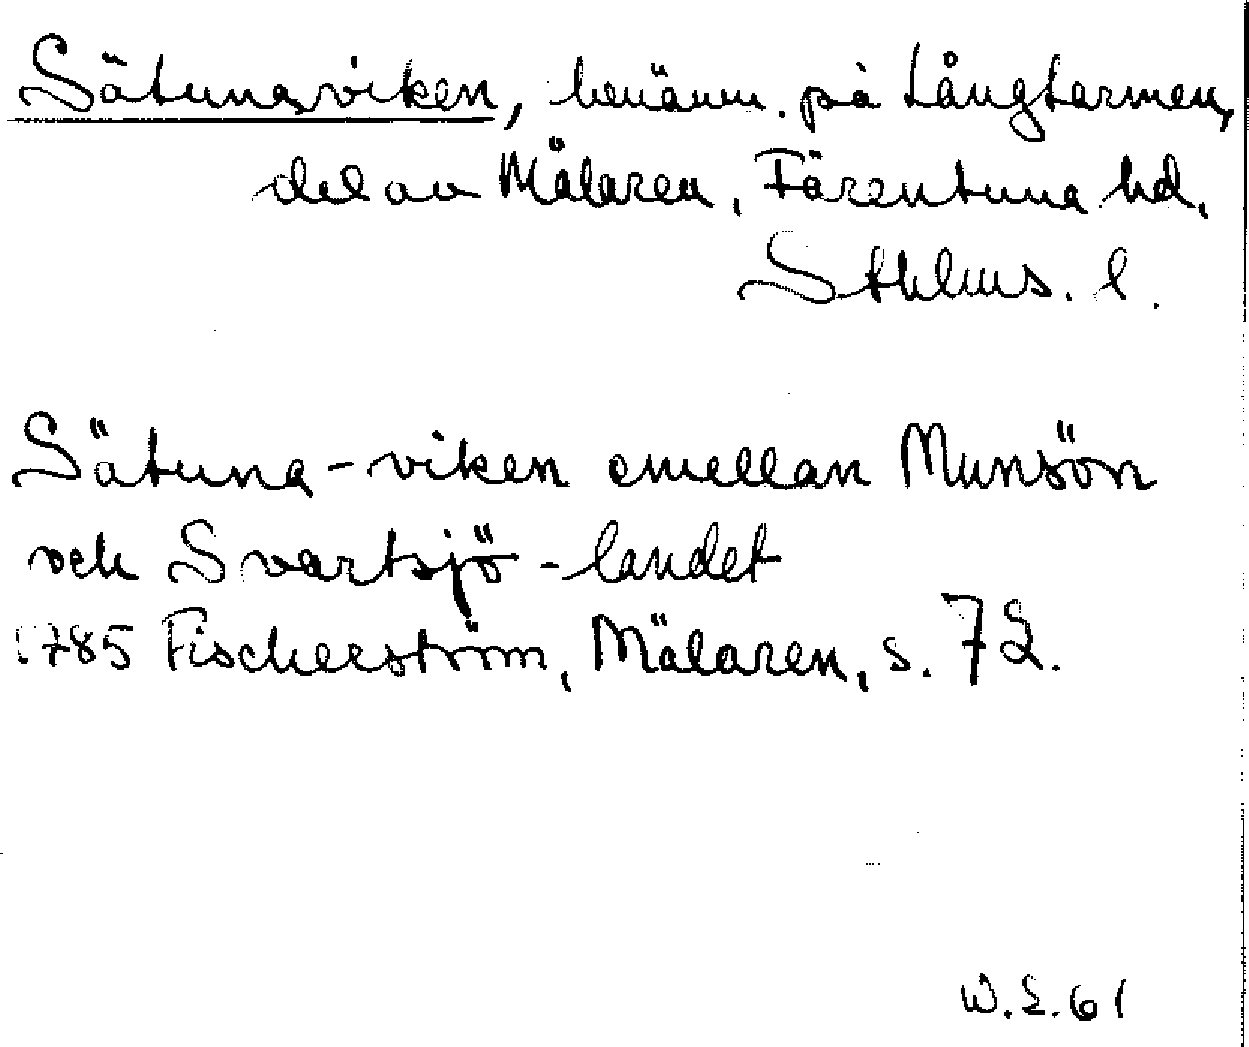 Sätunaviken, benämn. på Långtarmen,
del av Mälaren, Färentuna hd,
Sthlms. l.
Sätuna-viken emellan Munsön
och Svartsjö-landet
1785 Fischerström, Mälaren, s. 72.
W.S.61